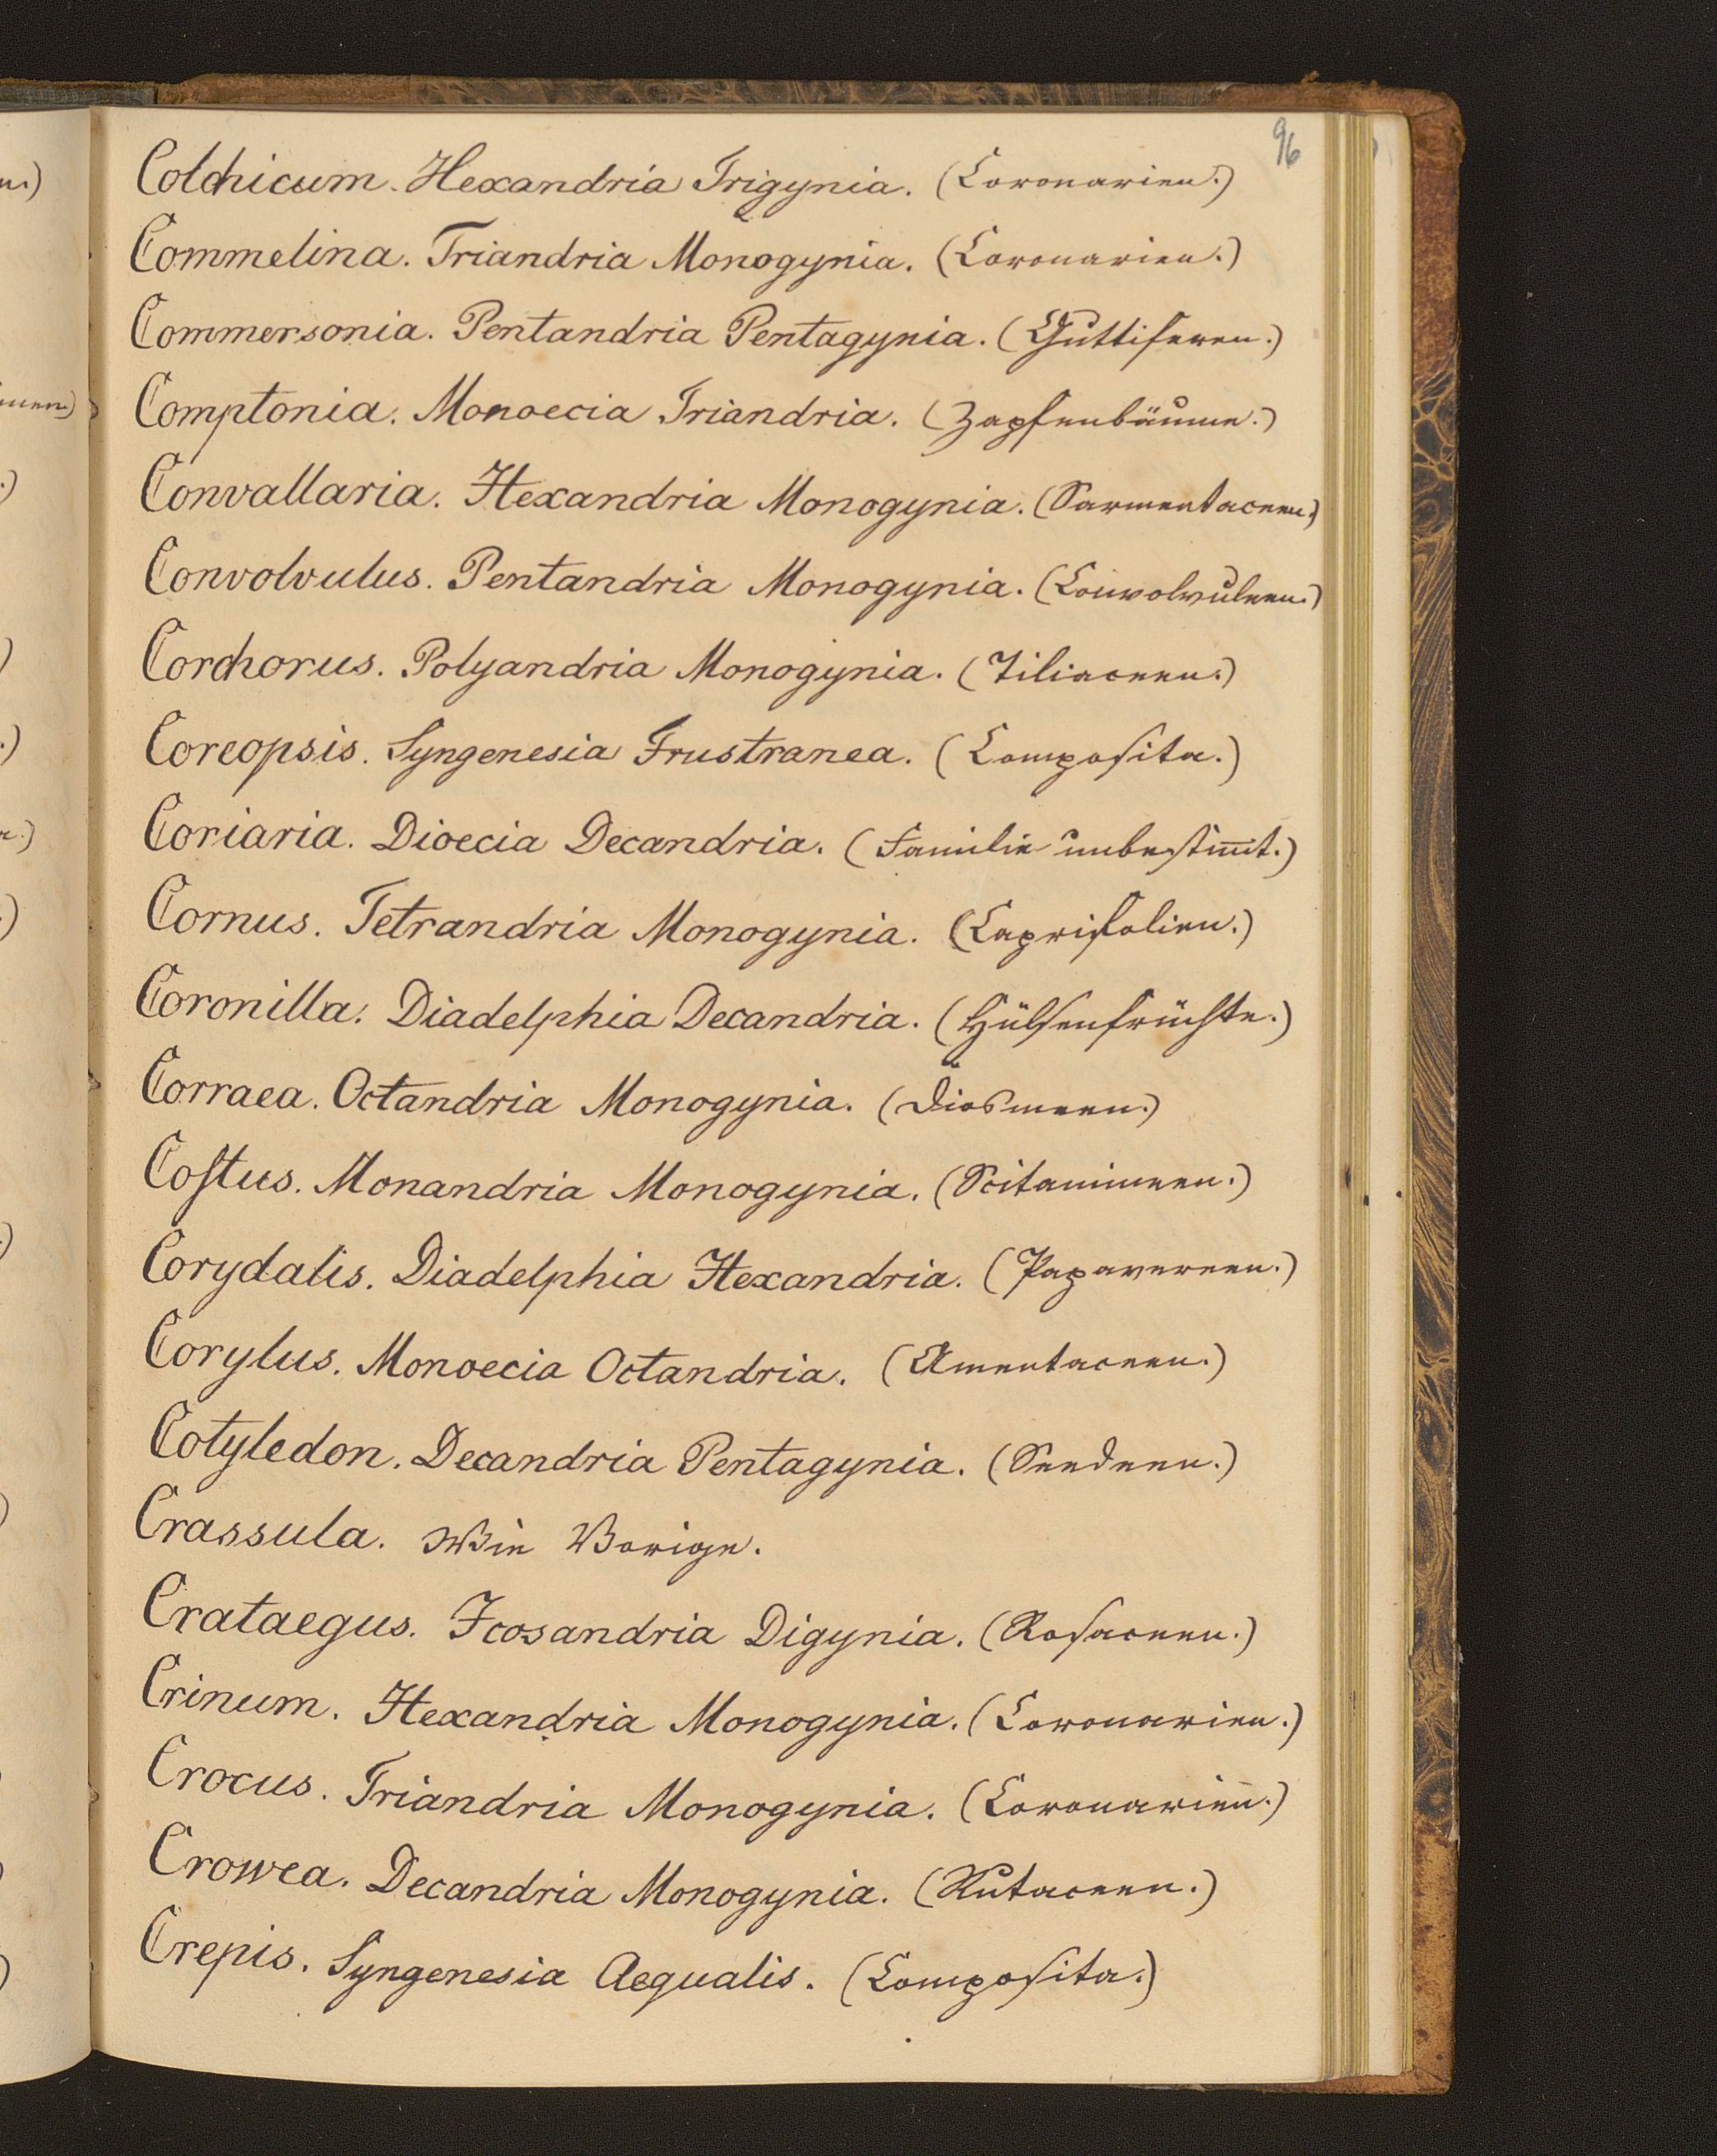 96
Colchicum. Hexandria Trigynia. (Coronarien.)
Commelina. Triandria Monogynia. (Coronarien.)
Commersonia. Pentandria Pentagynia. (Guttiferen.)
Comptonia. Monoecia Triandria. (Zapfenbäume.)
Convallaria. Hexandria Monogynia. (Sarmentaceen.)
Convolvulus. Pentandria Monogynia. (Convolvuleen.)
Corchorus. Polyandria Monogynia. (Tiliaceen.)
Coreopsis. Syngenesia Frustranea. (Composita.)
Coriaria. Dioecia Decandria. (Familie unbestim̄t.)
Cornus. Tetrandria Monogynia. (Caprifolien.)
Coronilla. Diadelphia Decandria. (Hülsenfrüchte.)
Corraea. Octandria Monogynia. (Diosmeen.)
Coſtus. Monandria Monogynia. (Scitamineen.)
Corydalis. Diadelphia Hexandria. (Papavereen.)
Corylus. Monoecia Octandria. (Amentaceen.)
Cotyledon. Decandria Pentagynia. (Seedeen.)
Crassula. Wie Vorige.
Crataegus. Icosandria Digynia. (Rosaceen.)
Crinum. Hexandria Monogynia. (Coronarien.)
Crocus. Triandria Monogynia. (Coronarien.)
Crowea. Decandria Monogynia. (Rutaceen.)
Crepis. Syngenesia Aequalis. (Composita.)